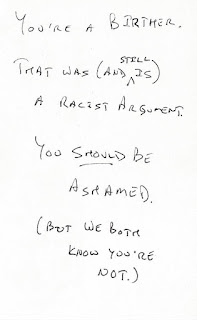 YOU'RE A BIRTHER.
THAT WAS (AND STILL IS)
A RACIST ARGUMENT.
YOU SHOULD BE
ASHAMED.
(BUT WE BOTH
KNOW YOU'RE
NOT.)